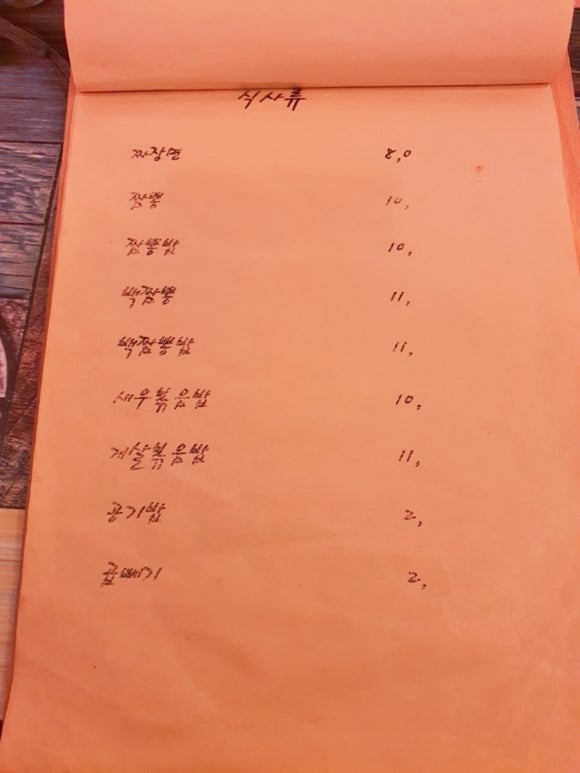 식사류
짜장면 8,0
짬뽕 10,
짬뽕밥 10,
백짬뽕 11,
백짬뽕밥 11,
새우볶음밥 10,
게살볶음밥 11,
공기밥 2,
곱빼기 2,